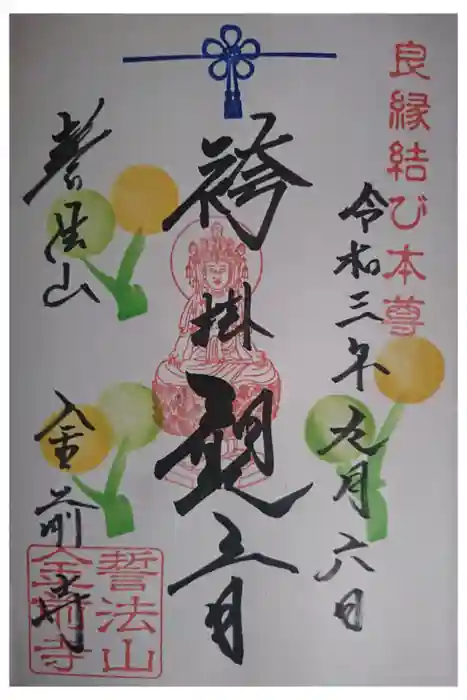 良縁結び本尊
令和三年九月六日
袴掛観音
誓法山 金前寺
誓法山
金前寺